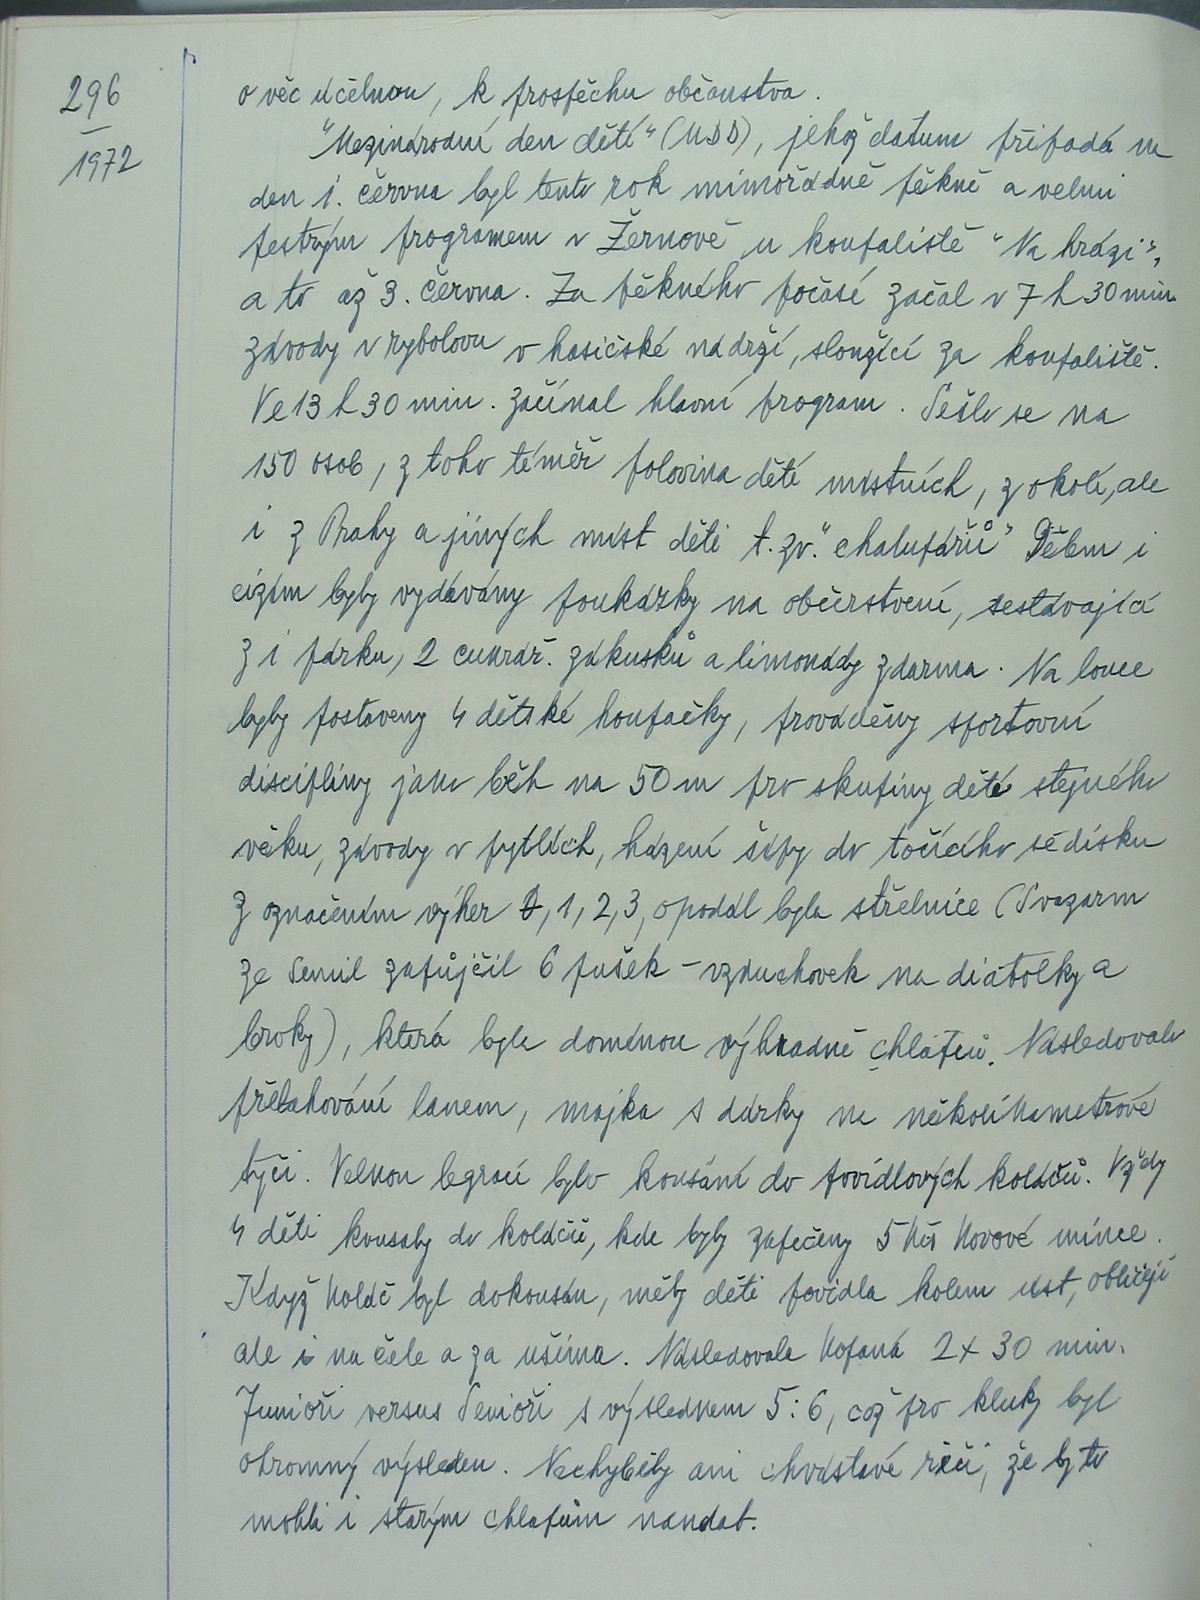 296
1972
o věc účelnou, k prospěchu občanstva.
"Mezinárodní den dětí" (MDD), jehož datum připadá na
den 1. června byl tento rok mimořádně pěkně a velmi
pestrým programem v Žernově u koupaliště "Na hrázi",
a to až 3. června. Za pěkného počasí začal v 7 h 30 min.
závody v rybolovu v hasičské nádrži, sloužící za koupaliště.
Ve 13 h 30 min. začínal hlavní program. Sešlo se na
150 osob, z toho téměř polovina dětí místních, z okolí, ale
i z Prahy a jiných míst děti t. zv. "chalupářů" Dětem i
cizím byly vydávány poukázky na občerstvení, sestávající
z 1 párku, 2 cukrář. zákusků a limonády zdarma. Na louce
byly postaveny 4 dětské houpačky, prováděny sportovní
disciplíny jako běh na 50 m pro skupiny dětí stejného
věku, závody v pytlích, házení šípy do točícího se disku
z označením výher 0, 1, 2, 3, opodál byla střelnice (Svazarm
ze Semil zapůjčil 6 pušek - vzduchovek na diabolky a
broky), která byla doménou výhradně chlapců. Následovalo
přetahování lanem, majka s dárky na několikametrové
tyči. Velkou legrací bylo kousání do povidlových koláčů. Vždy
4 děti kousaly do koláčů, kde byly zapečeny 5 Kčs kovové mince.
Když koláč byl dokousán, měly děti povidla kolem úst, obličeji
ale i na čele a za ušima. Následovala kopaná 2 x 30 min.
Junioři versus Senioři s výsledkem 5:6, což pro kluky byl
ohromný výsledek. Nechyběly ani chvástavé řeči, že by to
mohli i starým chlapům nandat.